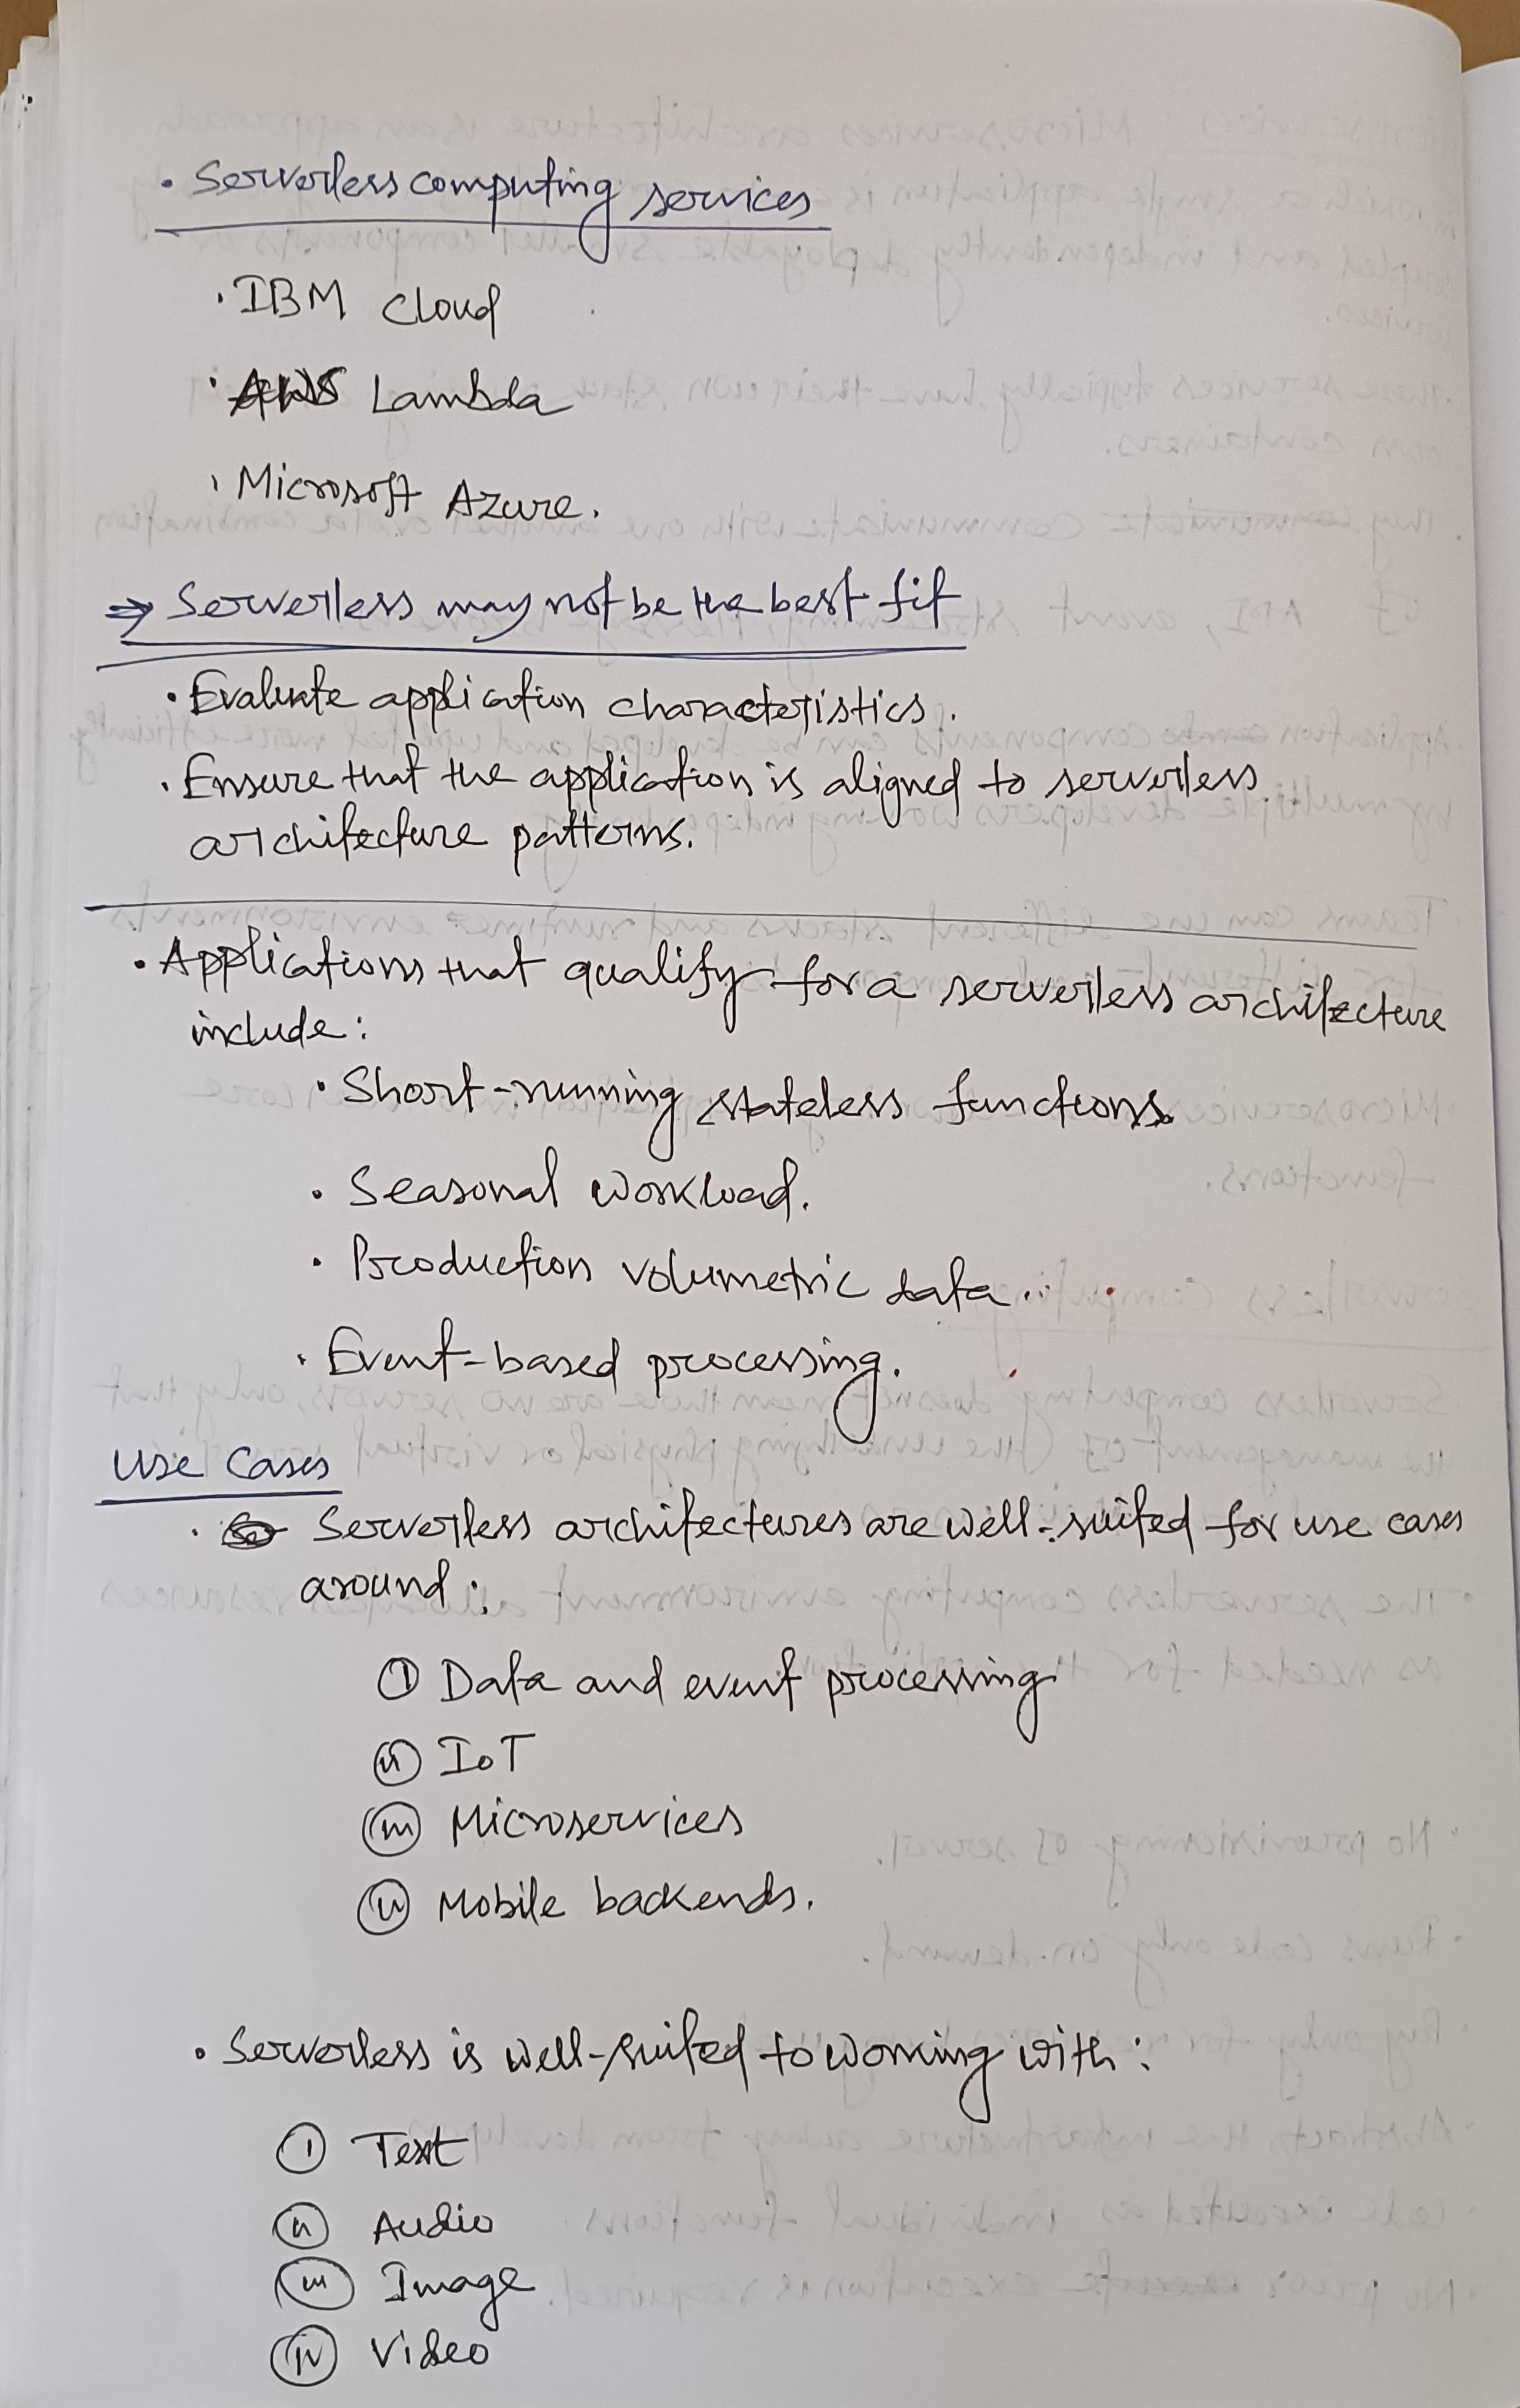 • Serverless computing services
• IBM Cloud
• AWS Lambda
• Microsoft Azure.
⇒ Serverless may not be the best fit
• Evaluate application characteristics.
• Ensure that the application is aligned to serverless
architecture patterns.
• Applications that qualify for a serverless architecture
include:
• Short-running stateless functions
• Seasonal workload.
• Production volumetric data...
• Event-based processing.
Use Cases
• Serverless architectures are well-suited for use cases
around:
(i) Data and event processing
(ii) IoT
(iii) Microservices
(iv) Mobile backends.
• Serverless is well-suited to working with:
(i) Text
(ii) Audio
(iii) Image
(iv) Video